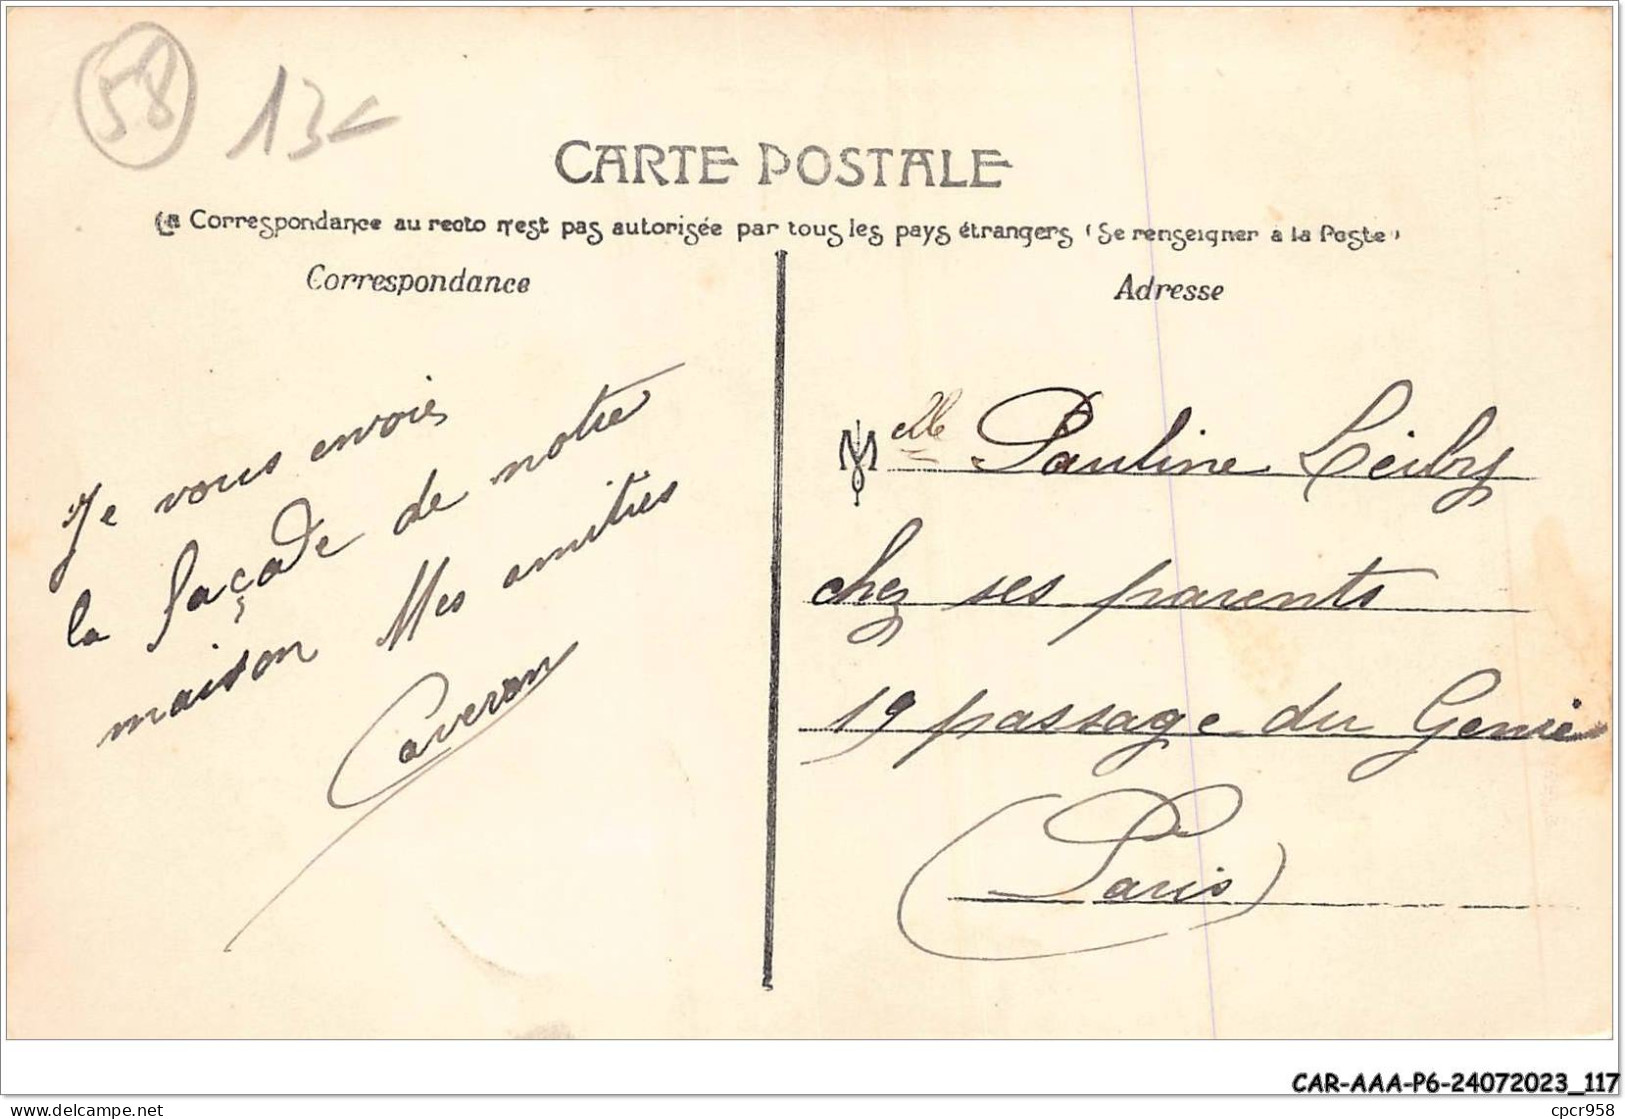 58 13
CARTE POSTALE
La Correspondance au recto n'est pas autorisée par tous les pays étrangers (Se renseigner à la Poste)
Correspondance
Adresse
Je vous envoies
la façade de notre
maison Mes amitiés
Caveron
Melle Pauline
chez ses parents
19 passage du Genie
(Paris)
CAR-AAA-P6-24072023_117
delcampe.net
cpcr958